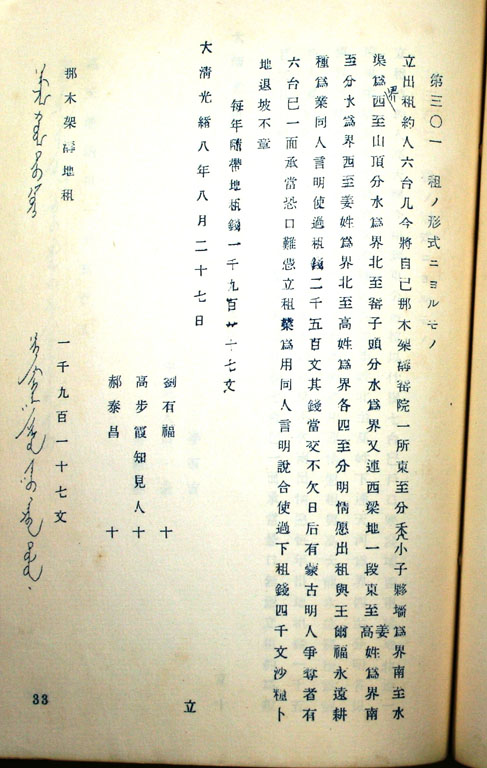 第三〇一　租ノ形式ニヨルモノ
立出租約人六台几今將自己那木架溝窰院一所東至分水小子夥墻爲界南至水
渠爲界西至山頂分水爲界北至窰子頭分水爲界又連西梁地一段東至姜高姓爲界南
至分水爲界西至姜姓爲界北至高姓爲界各四至分明情愿出租與王爾福永遠耕
種爲業同人言明使過租錢二千五百文其錢當交不欠日后有蒙古明人爭奪者有
六台巳一面承當恐口難憑立租業爲用同人言明說合使過下租錢四千文沙粮卜
地退坡不章
每年隨帶地租錢一千九百廿十七文
大清光緒八年八月二十七日
劉石福　十
高步霞知見人十
郝泰昌　十
立
那木架溝地租
一千九百一十七文
33